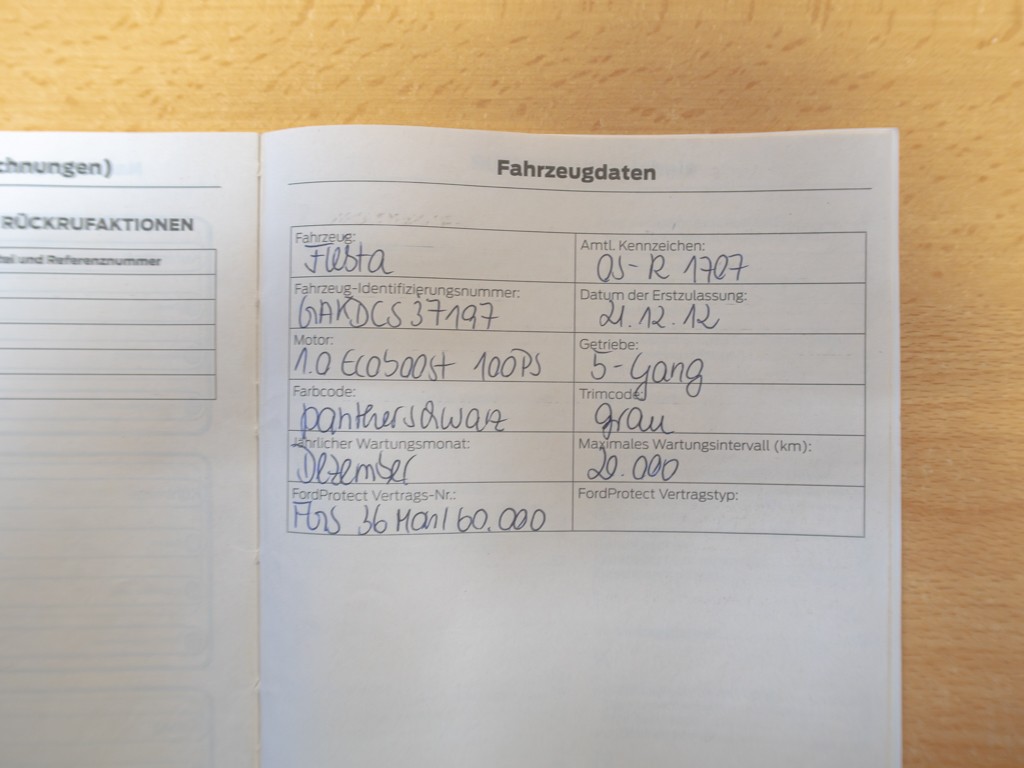 chnungen)
RÜCKRUFAKTIONEN
tel und Referenznummer
Fahrzeugdaten
Fahrzeug:
Fiesta
Amtl. Kennzeichen:
OS-R 1707
Fahrzeug-Identifizierungsnummer:
GAKDCS37197
Datum der Erstzulassung:
21.12.12
Motor:
1.0 Ecoboost 100PS
Getriebe:
5-Gang
Farbcode:
pantherschwarz
Trimcode:
grau
Jährlicher Wartungsmonat:
Dezember
Maximales Wartungsintervall (km):
20.000
FordProtect Vertrags-Nr.:
36 Mon/60.000
FordProtect Vertragstyp: